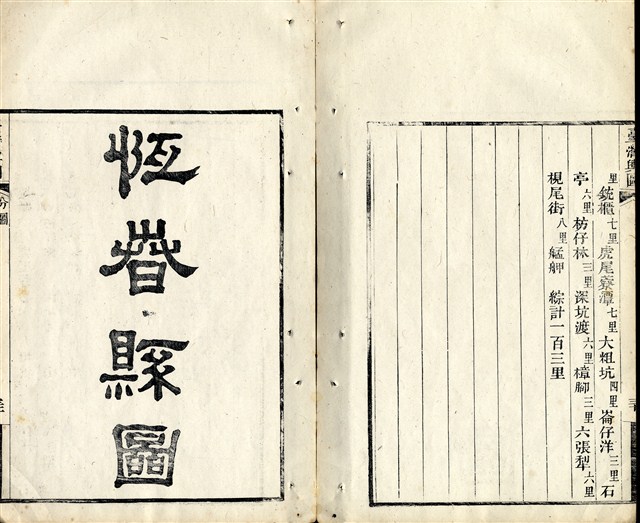 臺灣輿圖
里銃櫃七里虎尾寮潭七里大粗坑四里崙仔洋三里石
亭六里枋仔林三里深坑渡六里樟腳三里六張犁六里
梘尾街八里艋舺 綜計一百三里
恆春縣圖
分圖